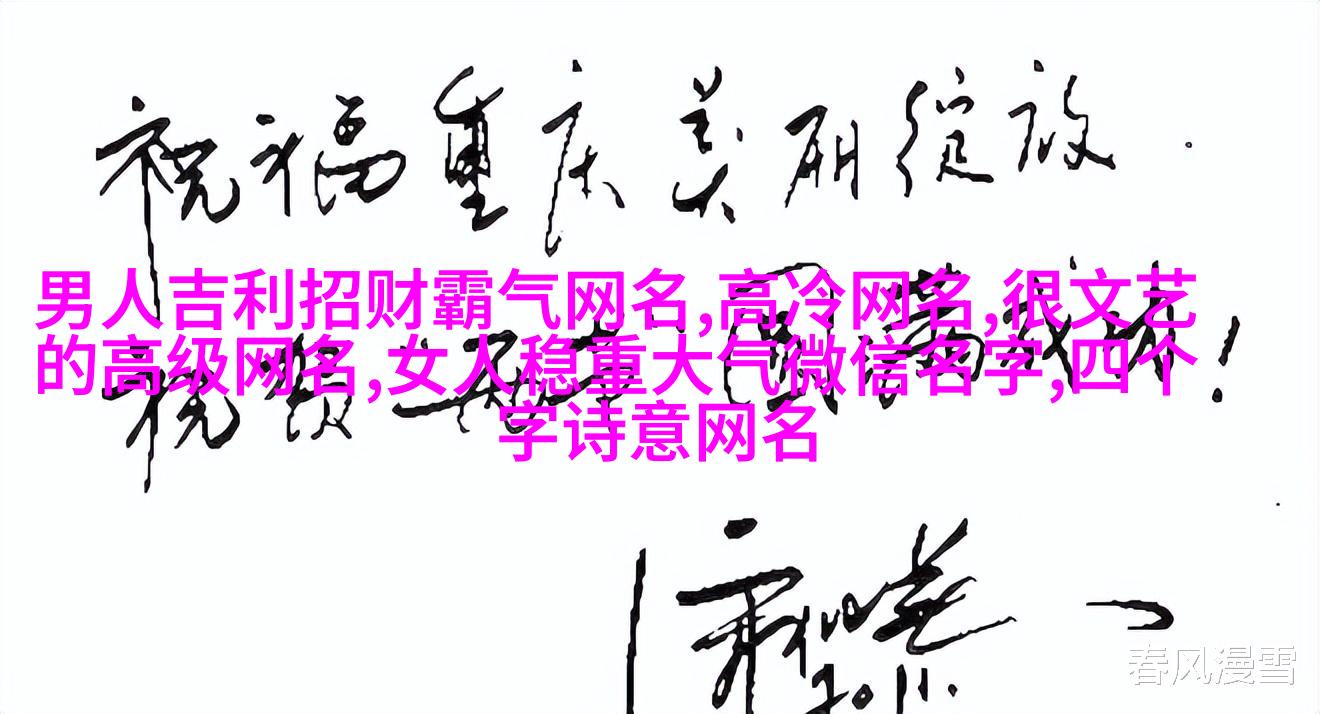 祝福重庆美丽绽放.
男人吉利招财霸气网名,高冷网名,很文艺
的高级网名,女人稳重大气微信名字,四个
字诗意网名
祝贺
2011.
春风漫雪